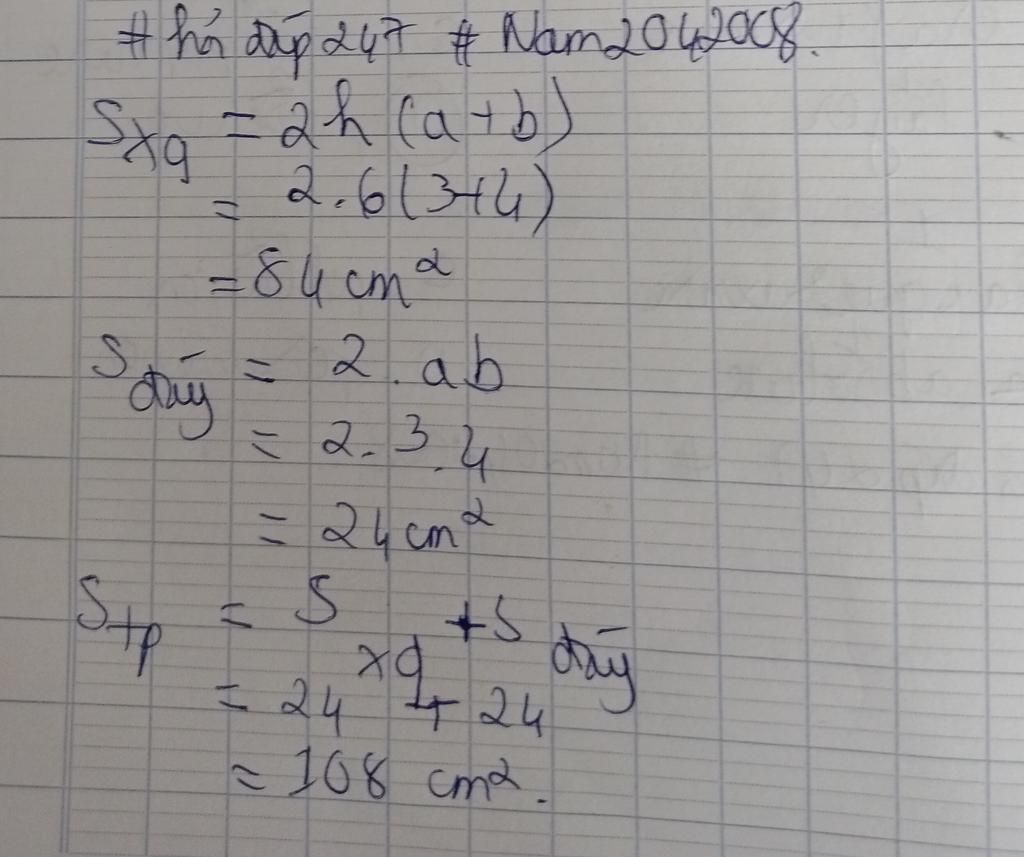 # hỏi đáp 247 # Nam2042008.
Sxq = 2h (a+b)
= 2.6(3+4)
= 84 cm²
Sđáy = 2.ab
= 2.3.4
= 24 cm²
Stp = Sxq + Sđáy
= 24 + 24
= 108 cm².